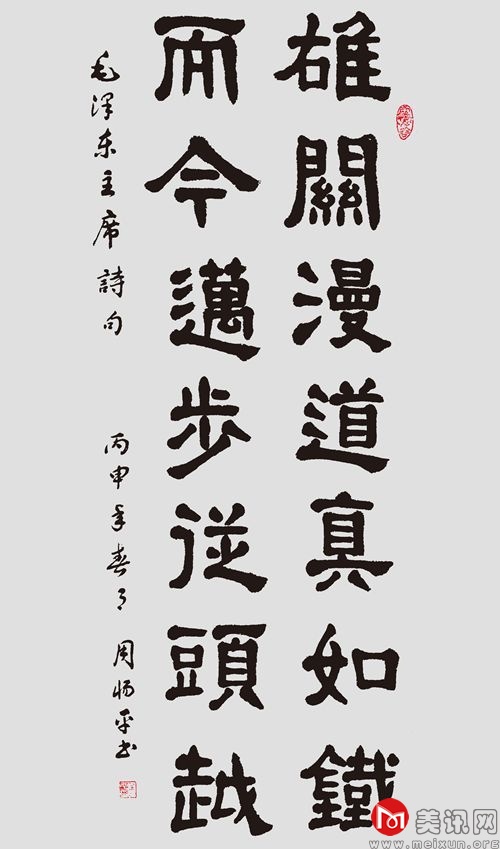 雄關漫道真如鐵
而今邁步從頭越
毛澤东主席詩句
丙申年春月 周炀平书
美讯网
www.meixun.org